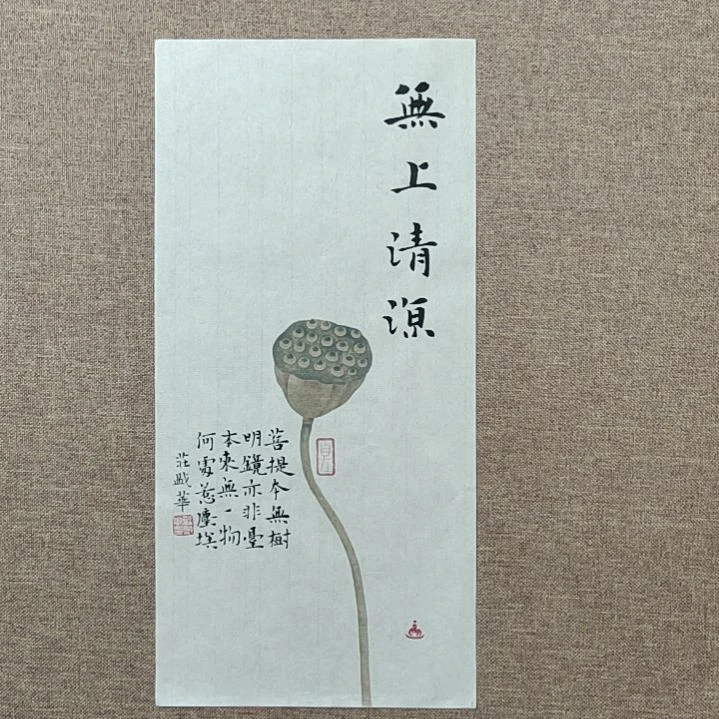 無上清涼
菩提本無樹
明鏡亦非臺
本來無一物
何處惹塵埃